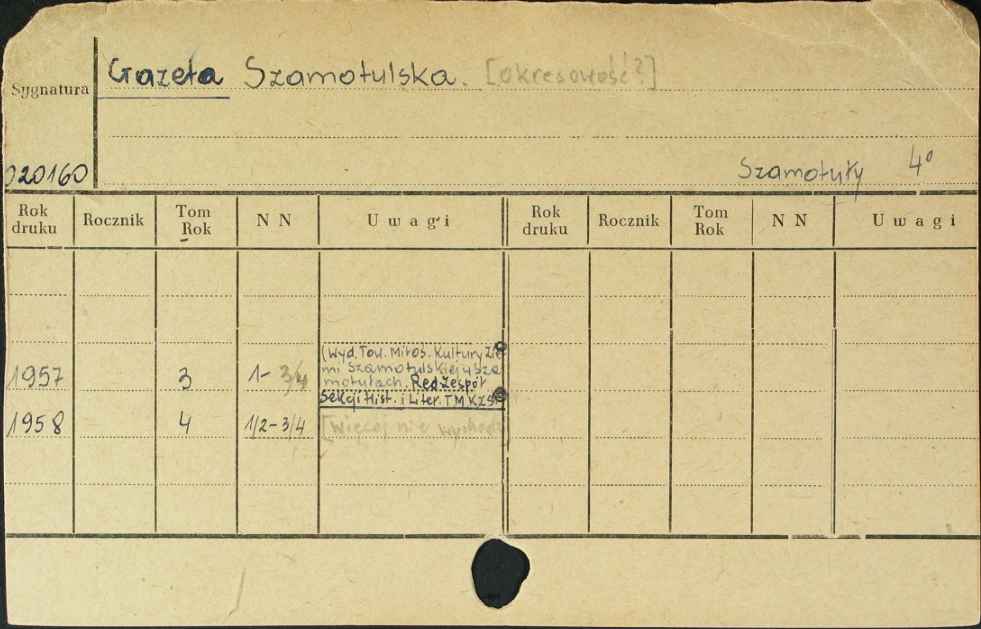 Gazeta Szamotulska. [okresowość?]
Sygnatura
020160
Szamotuły 4°
Rok druku Rocznik Tom Rok N N Uwagi Rok druku Rocznik Tom Rok N N Uwagi
(Wyd. Tow. Miłoś. Kultury Zie
mi Szamotulskiej w Sza
1957 3 1-3/4 motułach. Red. Zespół
Sekcji Hist. i Liter. TMKZSz
1958 4 1/2-3/4 [Więcej nie wychodzi]